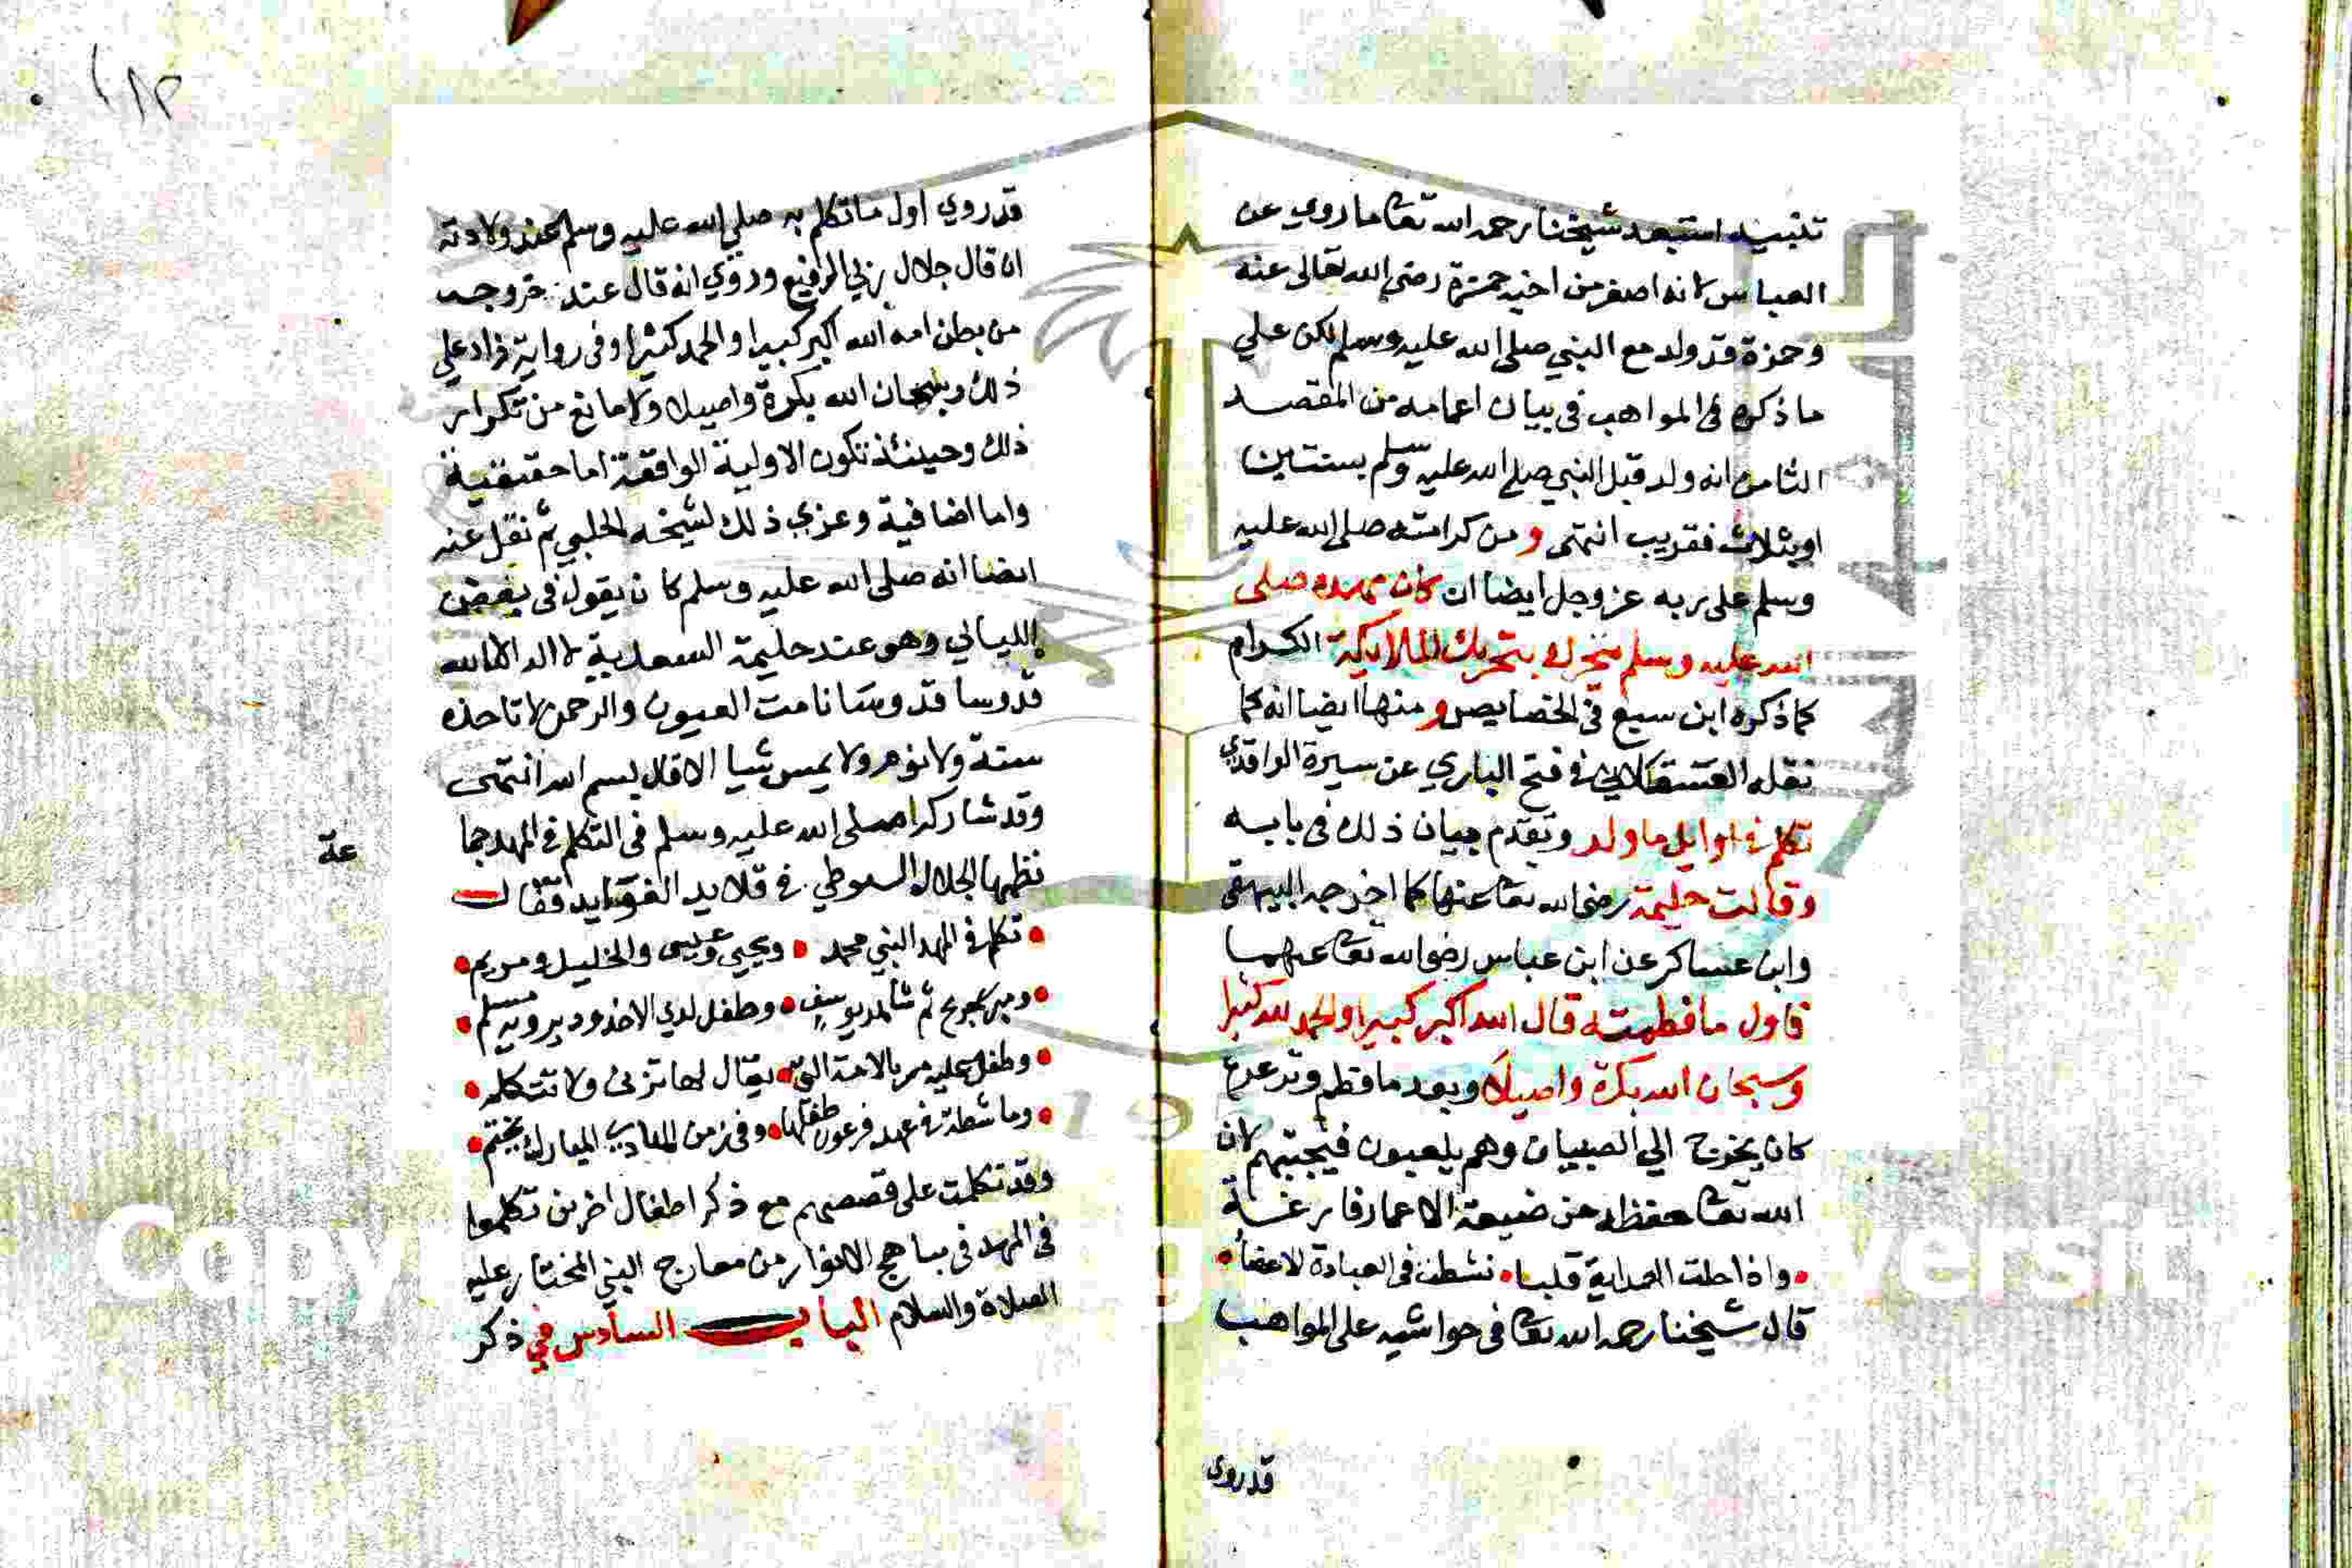 تنبيه استبعد شيخنا رحمه الله تعا ما روي عن
العباس لانه اصغر من اخيه حمزة رضي الله تعالى عنه
وحمزة قد ولد مع النبي صلى الله عليه وسلم لكن علي
ما ذكره في المواهب في بيان اعمامه من المقصد
الثامن انه ولد قبل النبي صلى الله عليه وسلم بسنتين
او بثلاث فقريب انتهى و من كرامته صلى الله عليه
وسلم على ربه عز وجل ايضا ان كان مهده صلى
الله عليه وسلم يتحرك بتحريك الملايكة الكرام
كما ذكره ابن سبع في الخصايص و منها ايضا انه كما
نقله العسقلاني في فتح الباري عن سيرة الواقدي
تكلم في اوايل ما ولد وتقدم بيان ذلك في بابه
وقالت حليمة رضي الله تعا عنها كما اخرجه البيهقي
وابن عساكر عن ابن عباس رضي الله تعا عنهما
فاول ما فطمته قال الله اكبر كبيرا والحمد لله كثيرا
وسبحان الله بكرة واصيلا وبعد ما فطم وترعرع
كان يخرج الي الصبيان وهم يلعبون فيجتنبهم لان
الله تعا حفظه من ضيعة الاعمار فارغة
واذا حلت الهداية قلبا نشطت في العبادة الاعضاء
قال شيخنا رحمه الله تعا في حواشيه على المواهب
قد روي
قد روي اول ما تكلم به صلى الله عليه وسلم عند ولادته
ان قال جلال ربي الرفيع وروي انه قال عند خروجه
من بطن امه الله اكبر كبيرا والحمد كثيرا وفي رواية زاد علي
ذلك وسبحان الله بكرة واصيلا ولا مانع من تكرار
ذلك وحينئذ تكون الاولية الواقعة اما حقيقية
واما اضافية وعزي ذلك لشيخه الحلبي ثم نقل عنه
ايضا انه صلى الله عليه وسلم كان يقول في بعض
الليالي وهو عند حليمة السعدية لا اله الا الله
قدوسا قدوسا نامت العيون والرحمن لا تاخذه
سنة ولا نوم ولا يمس شيا الا قال بسم الله انتهى
وقد شاركه صلى الله عليه وسلم في التكلم في المهد جما
عة
نظمها الجلال السيوطي في قلايد الفوايد فقال
تكلم في المهد النبي محمد ويحيى وعيسى والخليل ومريم
ومبري جريج ثم شاهد يوسف وطفل لدي الاخدود يرويه مسلم
وطفل عليه مر بالامة التي يقال لها تزني ولا تتكلم
وماشطة في عهد فرعون طفلها وفي زمن الهادي المبارك يختم
وقد تكلمت على قصصهم مع ذكر اطفال اخرين تكلموا
في المهد في مباهج الانوار من معارج النبي المختار عليه
الصلاة والسلام الباب السادس في ذكر